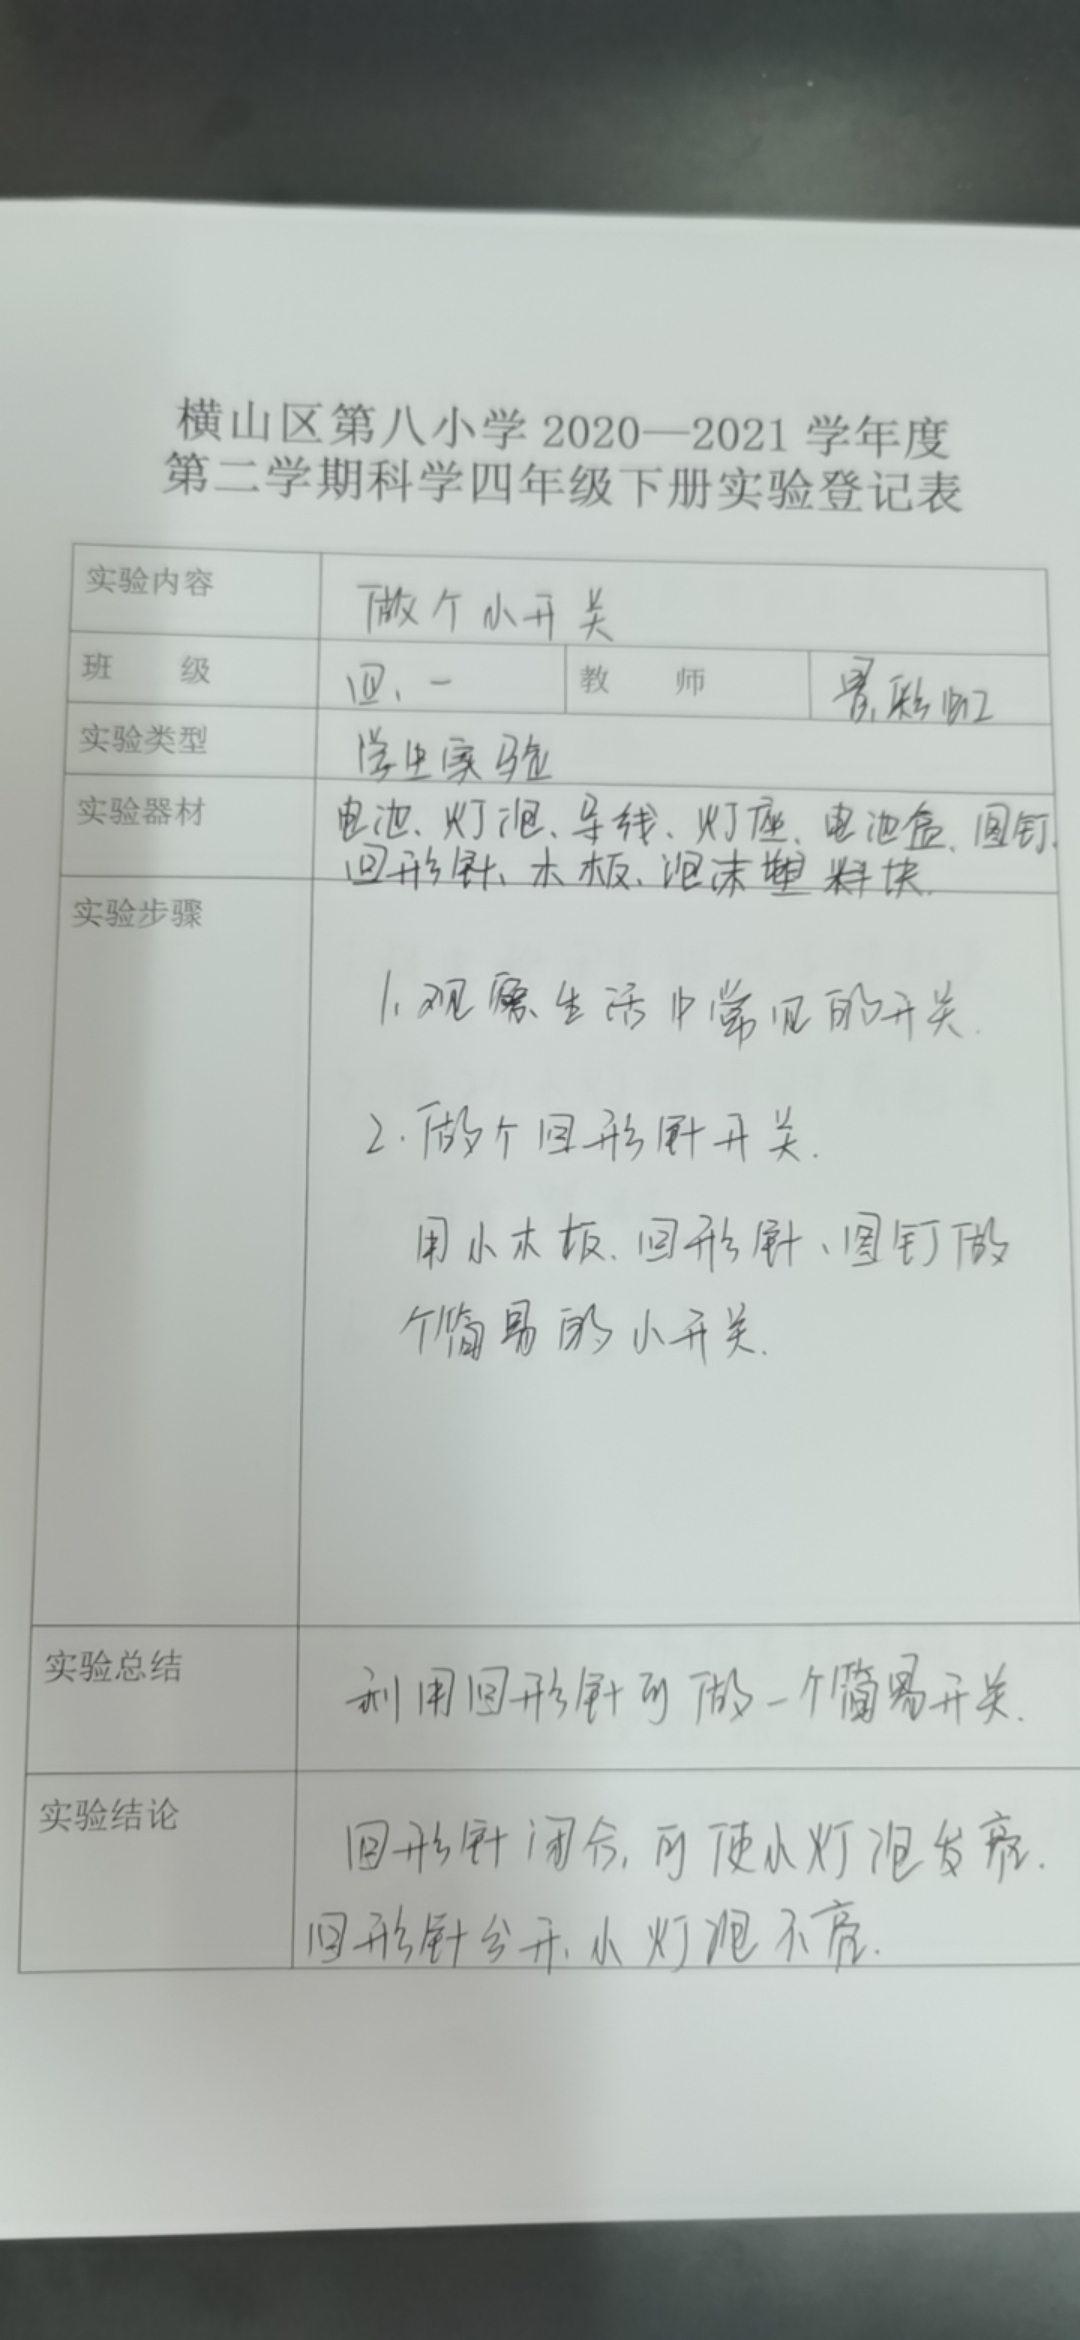 横山区第八小学 2020—2021 学年度
第二学期科学四年级下册实验登记表
实验内容 做个小开关
班 级 四、一 教 师 彩虹
实验类型 学生实验
实验器材 电池、灯泡、导线、灯座、电池盒、图钉、
回形针、木板、泡沫塑料块.
实验步骤
1、观察生活中常见的开关.
2.做个回形针开关.
用小木板、回形针、图钉做
个简易的小开关.
实验总结 利用回形针可做一个简易开关.
实验结论 回形针闭合,可使小灯泡发亮.
回形针分开、小灯泡不亮.